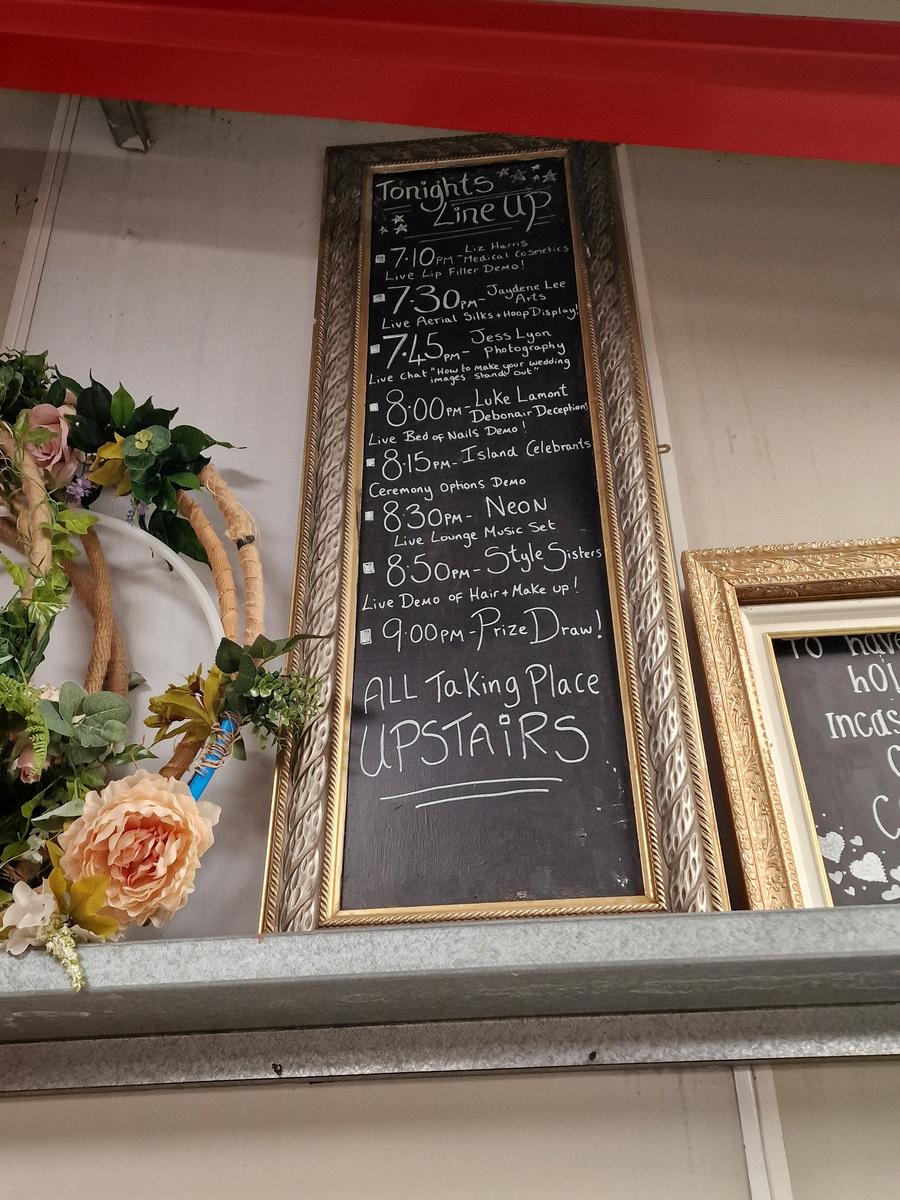 Tonights
Line UP
7·10PM- Liz Harris
Medical Cosmetics
Live Lip Filler Demo!
7·30PM- Jaydene Lee
Arts
Live Aerial Silks + Hoop Display!
7·45PM- Jess Lyon
Photography
Live Chat "How to make your wedding
images stand out"
8·00PM- Luke Lamont
Debonair Deceptions
Live Bed of Nails Demo!
8·15PM- Island Celebrants
Ceremony Options Demo
8·30PM- Neon
Live Lounge Music Set
8·50PM- Style Sisters
Live Demo of Hair + Make up!
9·00PM- Prize Draw!
ALL Taking Place
UPSTAiRS
To have
hol
Incas